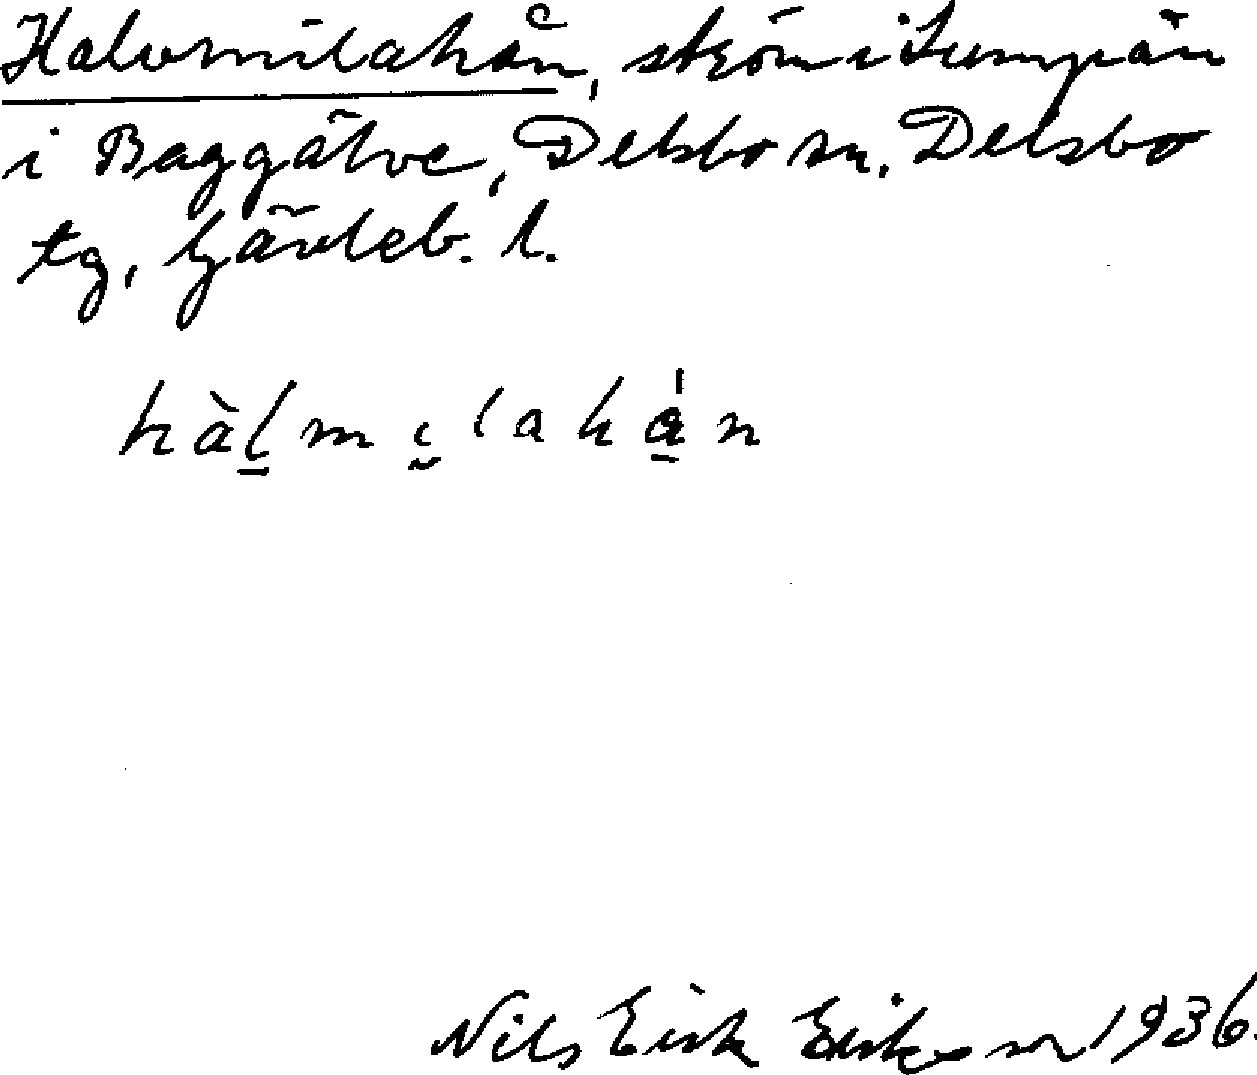 Halvmilahån, ström i Lumpån
i Baggälve, Delsbo sn. Delsbo
tg, Gävleb. l.
hàl̠mi̮lahǻ̠n
Nils Erik Eriksson 1936.